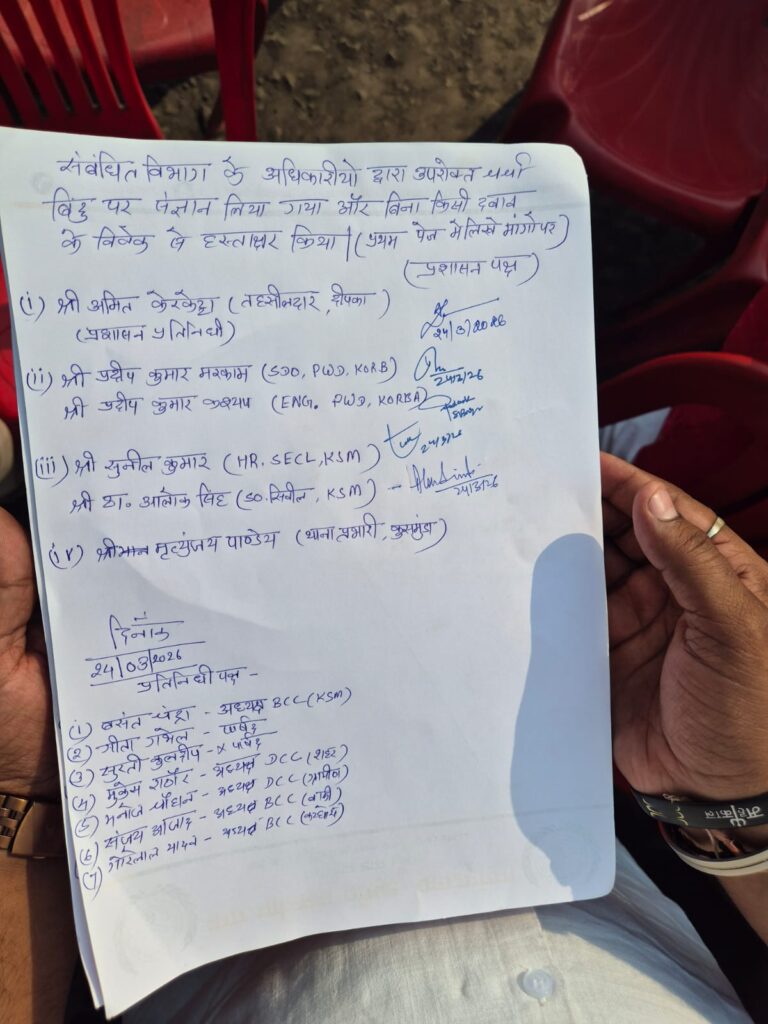 संबंधित विभाग के अधिकारीयो द्वारा उपरोक्त चर्चा
बिंदु पर संज्ञान लिया गया और बिना किसी दबाव
के विवेक से हस्ताक्षर किया | (प्रथम पेज मे लिखे मांगो पर)
(प्रशासन पक्ष)
(i) श्री अमित केरकेट्टा (तहसीलदार, दीपका)
24/3/2026
(प्रशासन प्रतिनिधी)
(ii) श्री प्रदीप कुमार मरकाम (SDO, PWD, KORB)
24/3/26
श्री प्रदीप कुमार कश्यप (ENG. PWD, KORBA)
(iii) श्री सुनील कुमार (HR. SECL, KSM)
24/3/26
श्री डा. आलोक सिंह (SO. सिविल, KSM) -
24/3/26
(iv) श्रीमान मृत्युंजय पाण्डेय (थाना प्रभारी, कुसमुंडा)
दिनाँक
24/03/2026
प्रतिनिधी पक्ष -
(1) बसंत चंद्रा - अध्यक्ष BCC (KSM)
(2) गीता गभेल - पार्षद
(3) सुरती कुलदीप - X पार्षद
(4) मुकेश राठौर - अध्यक्ष DCC (शहर)
(5) मनोज चौहान - अध्यक्ष DCC (ग्रामीण)
(6) संजय आजाद - अध्यक्ष BCC
(7) गोरेलाल यादव - अध्यक्ष BCC
महाकाल